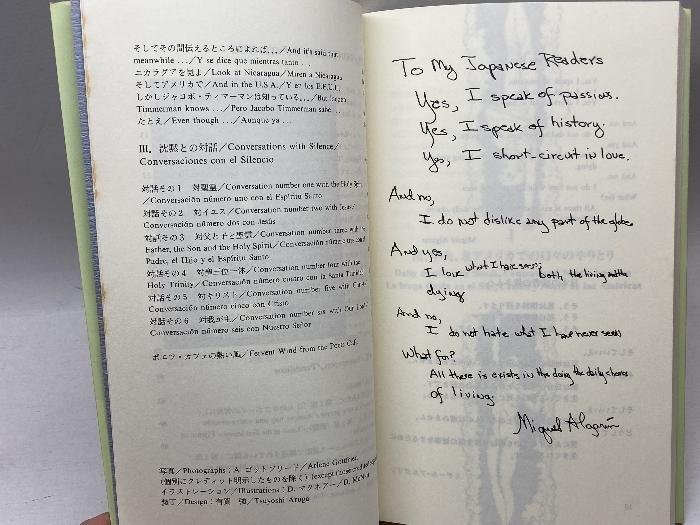 そしてその間伝えるところによれば…/And it's said that
meanwhile .../Y se dice que mientras tanto ...
ニカラグアを見よ/Look at Nicaragua/Miren a Nicaragua
そしてアメリカで/And in the U.S.A./Y en los E.E.U.U.
しかしジャコボ・ティマーマンは知っている…/But Jacobo
Timmerman knows .../Pero Jacobo Timmerman sabe ...
たとえ/Even though .../Aunque ya ...
III. 沈黙との対話/Conversations with Silence/
Conversaciones con el Silencio
対話その1 対聖霊/Conversation number one with the Holy
/Conversación número uno con el Espíritu Santo
対話その2 対イエス/Conversation number two with Jesus/
Conversación número dos con Jesús
対話その3 対父と子と聖霊/Conversation number three with the
Father, the Son and the Holy Spirit/Conversación número tres con
Padre, el Hijo y el Espíritu Santo
対話その4 対聖三位一体/Conversation number four with the
Holy Trinity/Conversación número cuatro con la Santa
対話その5 対キリスト/Conversation number five with
Conversación número cinco con Cristo
対話その6 対我が主/Conversation number six with Our
Conversación número seis con Nuestro Señor
ポエツ・カフェの熱い風/Fervent Wind from the Poets Café
写真/Photographs: A. ゴットフリード/Arlene Gottfried,
(個別にクレディット明示したものを除く) (except those
イラストレーション/Illustrations: D.
装丁/Design: 有賀 強/Tsuyoshi Aruga
To My Japanese Readers
Yes, I speak of passion.
Yes, I speak of history.
Yes, I short-circuit in love.
And no,
I do not dislike any part of the globe.
And yes,
I love what I have seen: both, the living and the
dying.
And no,
I do not hate what I have never seen
What for?
All there is exists in the doing the daily chores
of living.
Miguel Algarín